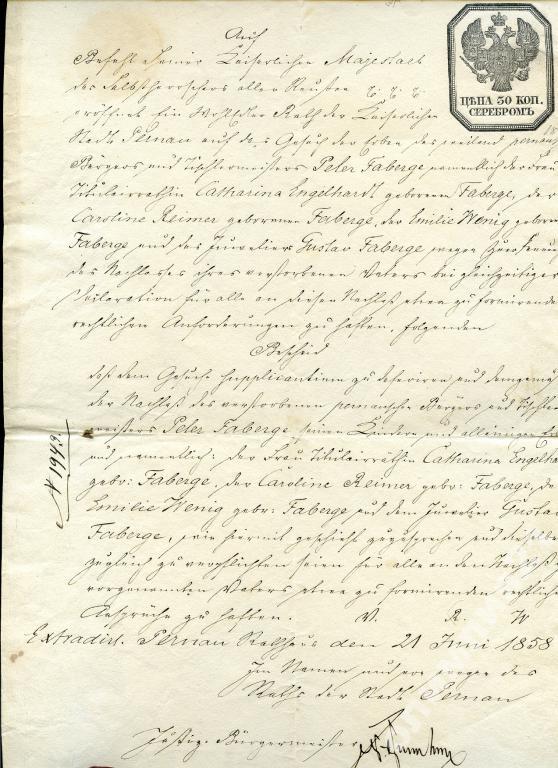 Auf
Befehl Seiner Kaiserlichen Majestaet
des Selbstherrschers aller Reussen &. &. &.
eröffnet Ein Wohledler Rath der Kaiserlichen
Stadt Pernau auf das Gesuch der Erben des weiland pernau
Bürgers und Tischlermeisters Peter Faberge namentlich der Frau
Titulairräthin Catharina Engelhardt geborenen Faberge, der
Caroline Reimer geborenen Faberge, der Emilie Wenig geboren
Faberge und des Juweliers Gustav Faberge wegen
des Nachlasses ihres verstorbenen Vaters bei gleichzeitiger
Declaration für alle an diesen Nachlaß etwa zu formirende
rechtlichen Anforderungen zu haften, folgenden
Bescheid
daß dem Gesuche Supplicantium zu deferiren und demgemäß
der Nachlaß des verstorbenen pernauschen Bürgers und Tischler
meisters Peter Faberge, seinen Kindern und alleinigen
und namentlich: der Frau Titulairräthin Catharina Engelha
gebr: Faberge, der Caroline Reimer gebr: Faberge, de
Emilie Wenig gebr: Faberge und dem Juwelier Gustav
Faberge, wie hiermit geschieht zuzusprechen und dieselbe
zugleich zu verpflichten seien für alle an den Nachlaß
vorgenannten Vaters etwa zu formirenden rechtliche
Ansprüche zu haften. V. R. W
Extradirt. Pernau Rathhaus den 21 Juni 1858
Im Namen und von wegen des
Raths der Stadt Pernau
Justiz-Bürgermeister
ЦѢНА 30 КОП.
СЕРЕБРОМЪ
N 1949.